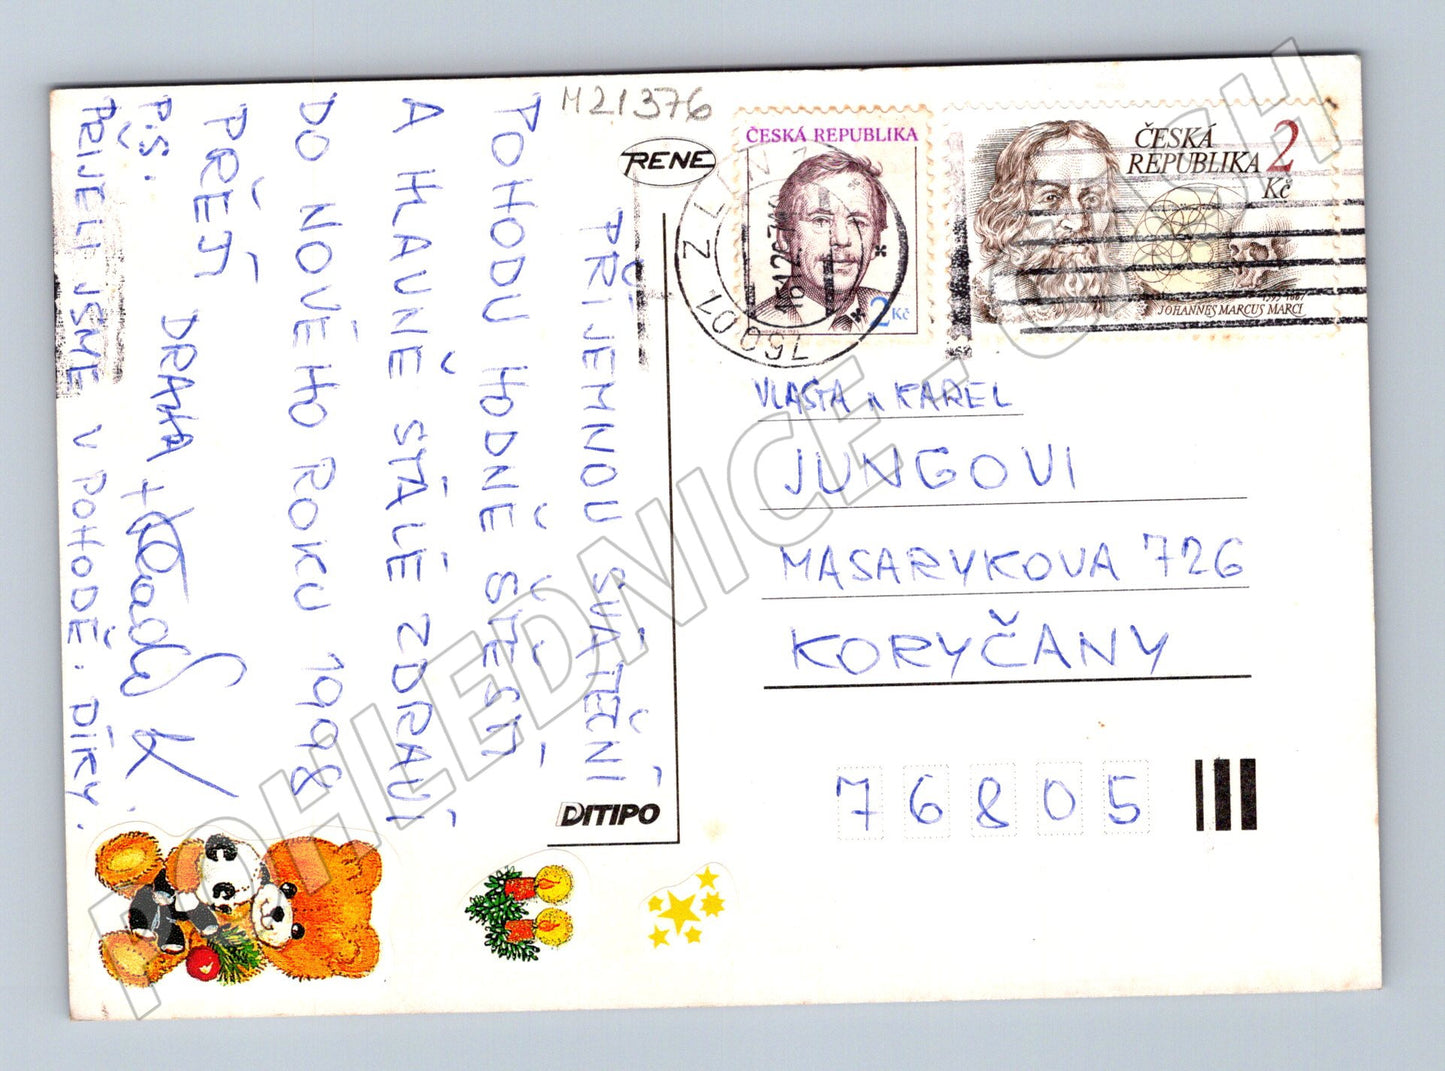 PŘÍJEMNOU SVÁTEČNÍ
POHODU HODNĚ ŠTĚSTÍ
A HLAVNĚ STÁLÉ ZDRAVÍ
DO NOVÉHO ROKU 1998
PŘEJÍ
DRAHA +
P.S.
PŘIJELI JSME V POHODĚ. DÍKY.
M21376
RENE
ČESKÁ REPUBLIKA
2 Kč
ČESKÁ
REPUBLIKA 2
Kč
1595-1667
JOHANNES MARCUS MARCI
760 01 ZLÍN 1
VLASTA A KAREL
JUNGOVI
MASARYKOVA 726
KORYČANY
76805
DITIPO
POHLEDNICE - CASH